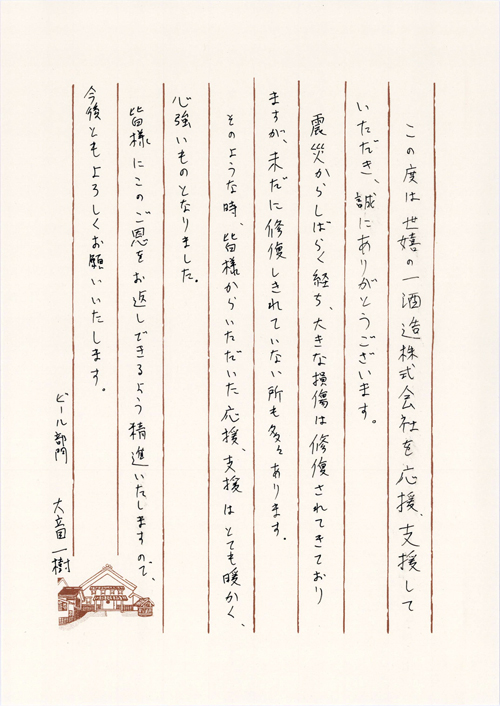 この度は世嬉の一酒造株式会社を応援、支援して
いただき、誠にありがとうございます。
震災からしばらく経ち、大きな損傷は修復されてきており
ますが、未だに修復しきれていない所も多々あります。
そのような時、皆様からいただいた応援、支援はとても暖かく、
心強いものとなりました。
皆様にこのご恩をお返しできるよう精進いたしますので、
今後ともよろしくお願いいたします。
ビール部門 一樹